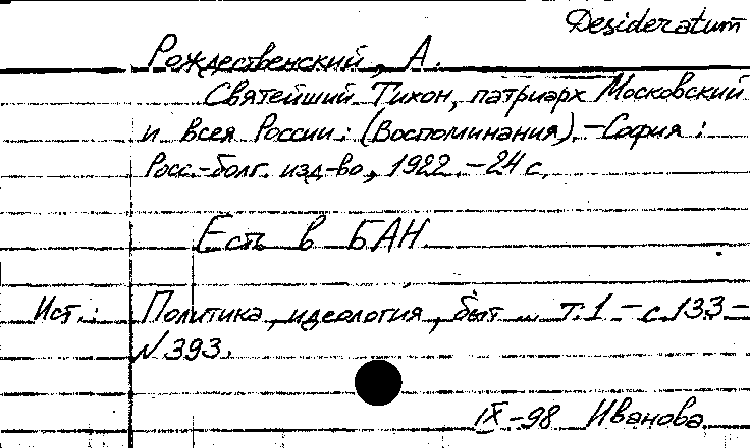 Desideratum
Рождественский, А.
Святейший Тихон, патриарх Московский
и всея России: (Воспоминания). – София:
Росс.-болг. изд-во, 1922. – 24 с.
Есть в БАН
Ист.: Политика, идеология, быт ... Т. 1 – с. 133 –
№ 393.
IX-98 Иванова